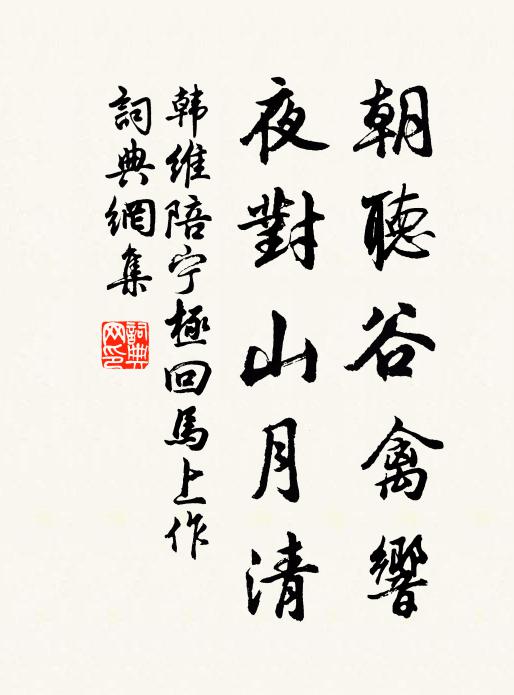 朝聽谷禽響
夜對山月清
韩維陪宁極回馬上作
詞典網集
詞典网印